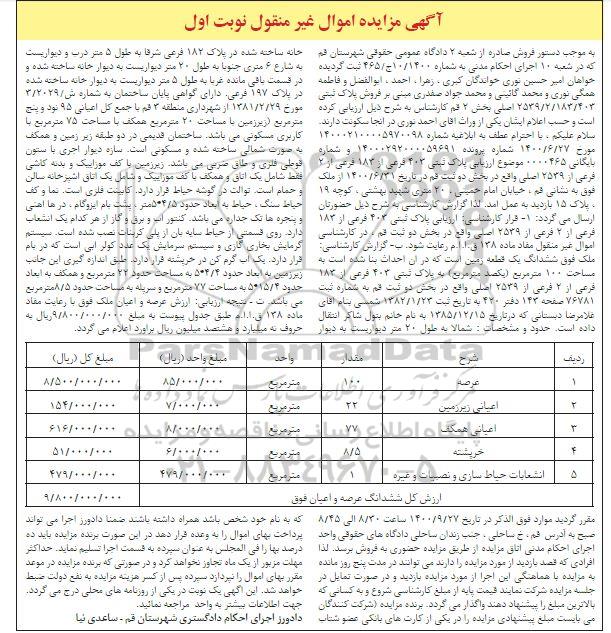 آگهی مزایده اموال غیر منقول نوبت اول
به موجب دستور فروش صادره از شعبه ۲ دادگاه عمومی حقوقی شهرستان قم
که در شعبه ۱۰ اجرای احکام مدنی به شماره ۱۰/۱۴۰۰ج/۴۶۵ ثبت گردیده
خواهان امیر حسین نوری خواندگان کبری ، زهرا ، احمد ، ابوالفضل و فاطمه
همگی نوری و محمد گائینی و محمد جواد صفدری مبنی بر فروش پلاک ثبتی
۲۵۳۹/۲/۱۸۳/۴۰۳ اصلی بخش ۲ قم کارشناس به شرح ذیل ارزیابی کرده
است و حسب اعلام ایشان یکی از وراث اقای احمد نوری در انجا سکونت دارند.
سلام علیکم ، با احترام عطف به ابلاغیه شماره ۱۴۰۰۰۲۱۰۰۰۰۵۹۷۰۰۹۸
مورخ ۱۴۰۰/۶/۲۷ شماره پرونده ۱۴۰۰۰۲۹۲۰۰۰۰۵۹۶۹۱ و شماره
بایگانی ۰۰۰۰۴۶۵ موضوع ارزیابی پلاک ثبتی ۴۰۳ فرعی از ۱۸۳ فرعی از ۲
فرعی از ۲۵۳۹ اصلی واقع در بخش دو ثبت قم در تاریخ ۱۴۰۰/۶/۳۱ از ملک
فوق به نشانی قم ، خیابان امام خمینی ، ۲۰ متری شهید بهشتی ، کوچه ۱۹
، پلاک ۱۵ بازدید به عمل امد. لذا گزارش کارشناسی به شرح ذیل حضورتان
ارسال می گردد: ۱- قرار کارشناسی: ارزیابی پلاک ثبتی ۴۰۳ فرعی از ۱۸۳
فرعی از ۲ فرعی از ۲۵۳۹ اصلی واقع در بخش دو ثبت قم . در کارشناسی
اموال غیر منقول مفاد ماده ۱۳۸ ق.ا.ا.م رعایت شود. ب- گزارش کارشناسی:
ملک فوق ششدانگ یک قطعه زمین است که در ان احداث بنا شده است به
مساحت ۱۰۰ مترمربع (یکصد مترمربع) به پلاک ثبتی ۴۰۳ فرعی از ۱۸۳
فرعی از ۲ فرعی از ۲۵۳۹ اصلی واقع در بخش دو ثبت قم به شماره ثبت
۷۶۷۸۱ صفحه ۱۴۳ دفتر ۴۲۰ به تاریخ ثبت ۱۳۸۲/۱/۲۳ شمسی بنام اقای
غلامرضا دستانی که درتاریخ ۱۳۸۵/۱۲/۱۵ به نام خانم بتول شاکر انتقال
داده است. حدود و مشخصات : شمالا به طول ۲۰ متر دیواریست به دیوار
خانه ساخته شده در پلاک ۱۸۲ فرعی شرقا به طول ۵ متر درب و دیواریست
به شارع ۶ متری جنوبا به طول ۲۰ متر دیواریست به دیوار خانه ساخته شده و
در قسمت باقی مانده غربا به طول ۵ متر دیواریست به دیوار خانه ساخته شده
در پلاک ۱۹۷ فرعی. دارای گواهی پایان ساختمان به شماره ش/۳/۲۰۲۹
مورخ ۱۳۸۱/۲/۲۹ از شهرداری منطقه ۳ قم با جمع کل اعیانی ۹۵ نود و پنج
مترمربع (زیرزمین با مساحت ۲۰ مترمربع همکف با مساحت ۷۵ مترمربع با
کاربری مسکونی می باشد. ساختمان قدیمی در دو طبقه زیر زمین و همکف
به صورت شمالی ساخته شده و مسکونی است. سازه دیوار اجری با ستون
قوطی فلزی و طاق ضربی می باشد. زیرزمین با کف موزاییک و بدنه کاشی
فقط شامل یک اتاق و همکف با کف موزاییک و شامل یک اتاق اشپزخانه سالن
و حمام است. توالت در گوشه حیاط قرار دارد. کابینت فلزی است. نما و کف
حیاط سنگ ، حیاط به ابعاد حدود ۴/۵*۵متر ، پشت بام ایزوگام ، در ها اهنی
و پنجره ها تک جداره می باشد. کنتور اب و برق و گاز از هر کدام یک انشعاب
دارد. روی قسمتی از حیاط سایه بان از پلی کربنات نصب شده است. سیستم
گرمایش بخاری گازی و سیستم سرمایش یک عدد کولر ابی است که در بام
قرار دارد. یک اب گرم کن در خرپشته قرار دارد. طبق اندازه گیری این جانب
زیرزمین به ابعاد حدود ۴/۴*۵ به مساحت حدود ۲۲ مترمربع و همکف به ابعاد
حدود ۱۵/۴*۵ به مساحت ۷۷ مترمربع و سرپله به مساحت حدود ۸/۵مترمربع
می باشد. ت - نتیجه ارزیابی: ارزش عرصه و اعیان ملک فوق با رعایت مفاد
ماده ۱۳۸ ق.ا.ا.م طبق جدول پیوست به مبلغ ۹/۸۰۰/۰۰۰/۰۰۰ریال به
حروف نه میلیارد و هشتصد میلیون ریال براورد اعلام می گردد.
ردیف شرح مقدار واحد مبلغ واحد (ریال) مبلغ کل (ریال)
۱ عرصه ۱۰۰ مترمربع ۸۵/۰۰۰/۰۰۰ ۸/۵۰۰/۰۰۰/۰۰۰
۲ اعیانی زیرزمین ۲۲ مترمربع ۷/۰۰۰/۰۰۰ ۱۵۴/۰۰۰/۰۰۰
۳ اعیانی همکف ۷۷ مترمربع ۸/۰۰۰/۰۰۰ ۶۱۶/۰۰۰/۰۰۰
۴ خرپشته ۸/۵ مترمربع ۶/۰۰۰/۰۰۰ ۵۱/۰۰۰/۰۰۰
۵ انشعابات حیاط سازی و نصبیات و غیره ۱ مترمربع ۴۷۹/۰۰۰/۰۰۰ ۴۷۹/۰۰۰/۰۰۰
ارزش کل ششدانگ عرصه و اعیان فوق ۹/۸۰۰/۰۰۰/۰۰۰
ParsNamadData
۰۲۱-۸۸۳۴۹۶۷۰-۵
مقرر گردید موارد فوق الذکر در تاریخ ۱۴۰۰/۹/۲۷ ساعت ۸/۳۰ الی ۸/۴۵
صبح به آدرس قم ، خ ساحلی ، جنب زندان ساحلی دادگاه های حقوقی واحد
اجرای احکام مدنی اتاق مزایده از طریق مزایده حضوری به فروش برسد. لذا
افرادی که قصد بازدید از مورد مزایده را دارند می توانند در مدت پنج روز مانده
به مزایده با هماهنگی این اجرا از مورد مزایده بازدید و در صورت تمایل در
جلسه مزایده شرکت نمایند قیمت پایه از مبلغ کارشناسی شروع و به کسانی که
بالاترین مبلغ را پیشنهاد دهند واگذار می گردد. برنده مزایده (شرکت کنندگان
می بایست مبلغ پیشنهادی مزایده را در یکی از کارت های بانکی عضو شتاب
که به نام خود شخص باشد همراه داشته باشند ضمنا دادورز اجرا می تواند
پرداخت بهای اموال را به وعده قرار دهد در این صورت برنده مزایده باید ده
درصد بها را فی المجلس به عنوان سپرده به قسمت اجرا تسلیم نماید. حداکثر
مهلت مزبور از یک ماه تجاوز نخواهد کرد و در صورتی که برنده مزایده در موعد
مقرر بهای اموال را نپردازد سپرده پس از کسر هزینه مزایده به نفع دولت ضبط
خواهد شد. این آگهی یک نوبت در یکی از روزنامه های محلی درج می گردد.
جهت اطلاعات بیشتر به واحد مراجعه نمائید.
دادورز اجرای احکام دادگستری شهرستان قم - ساعدی نیا